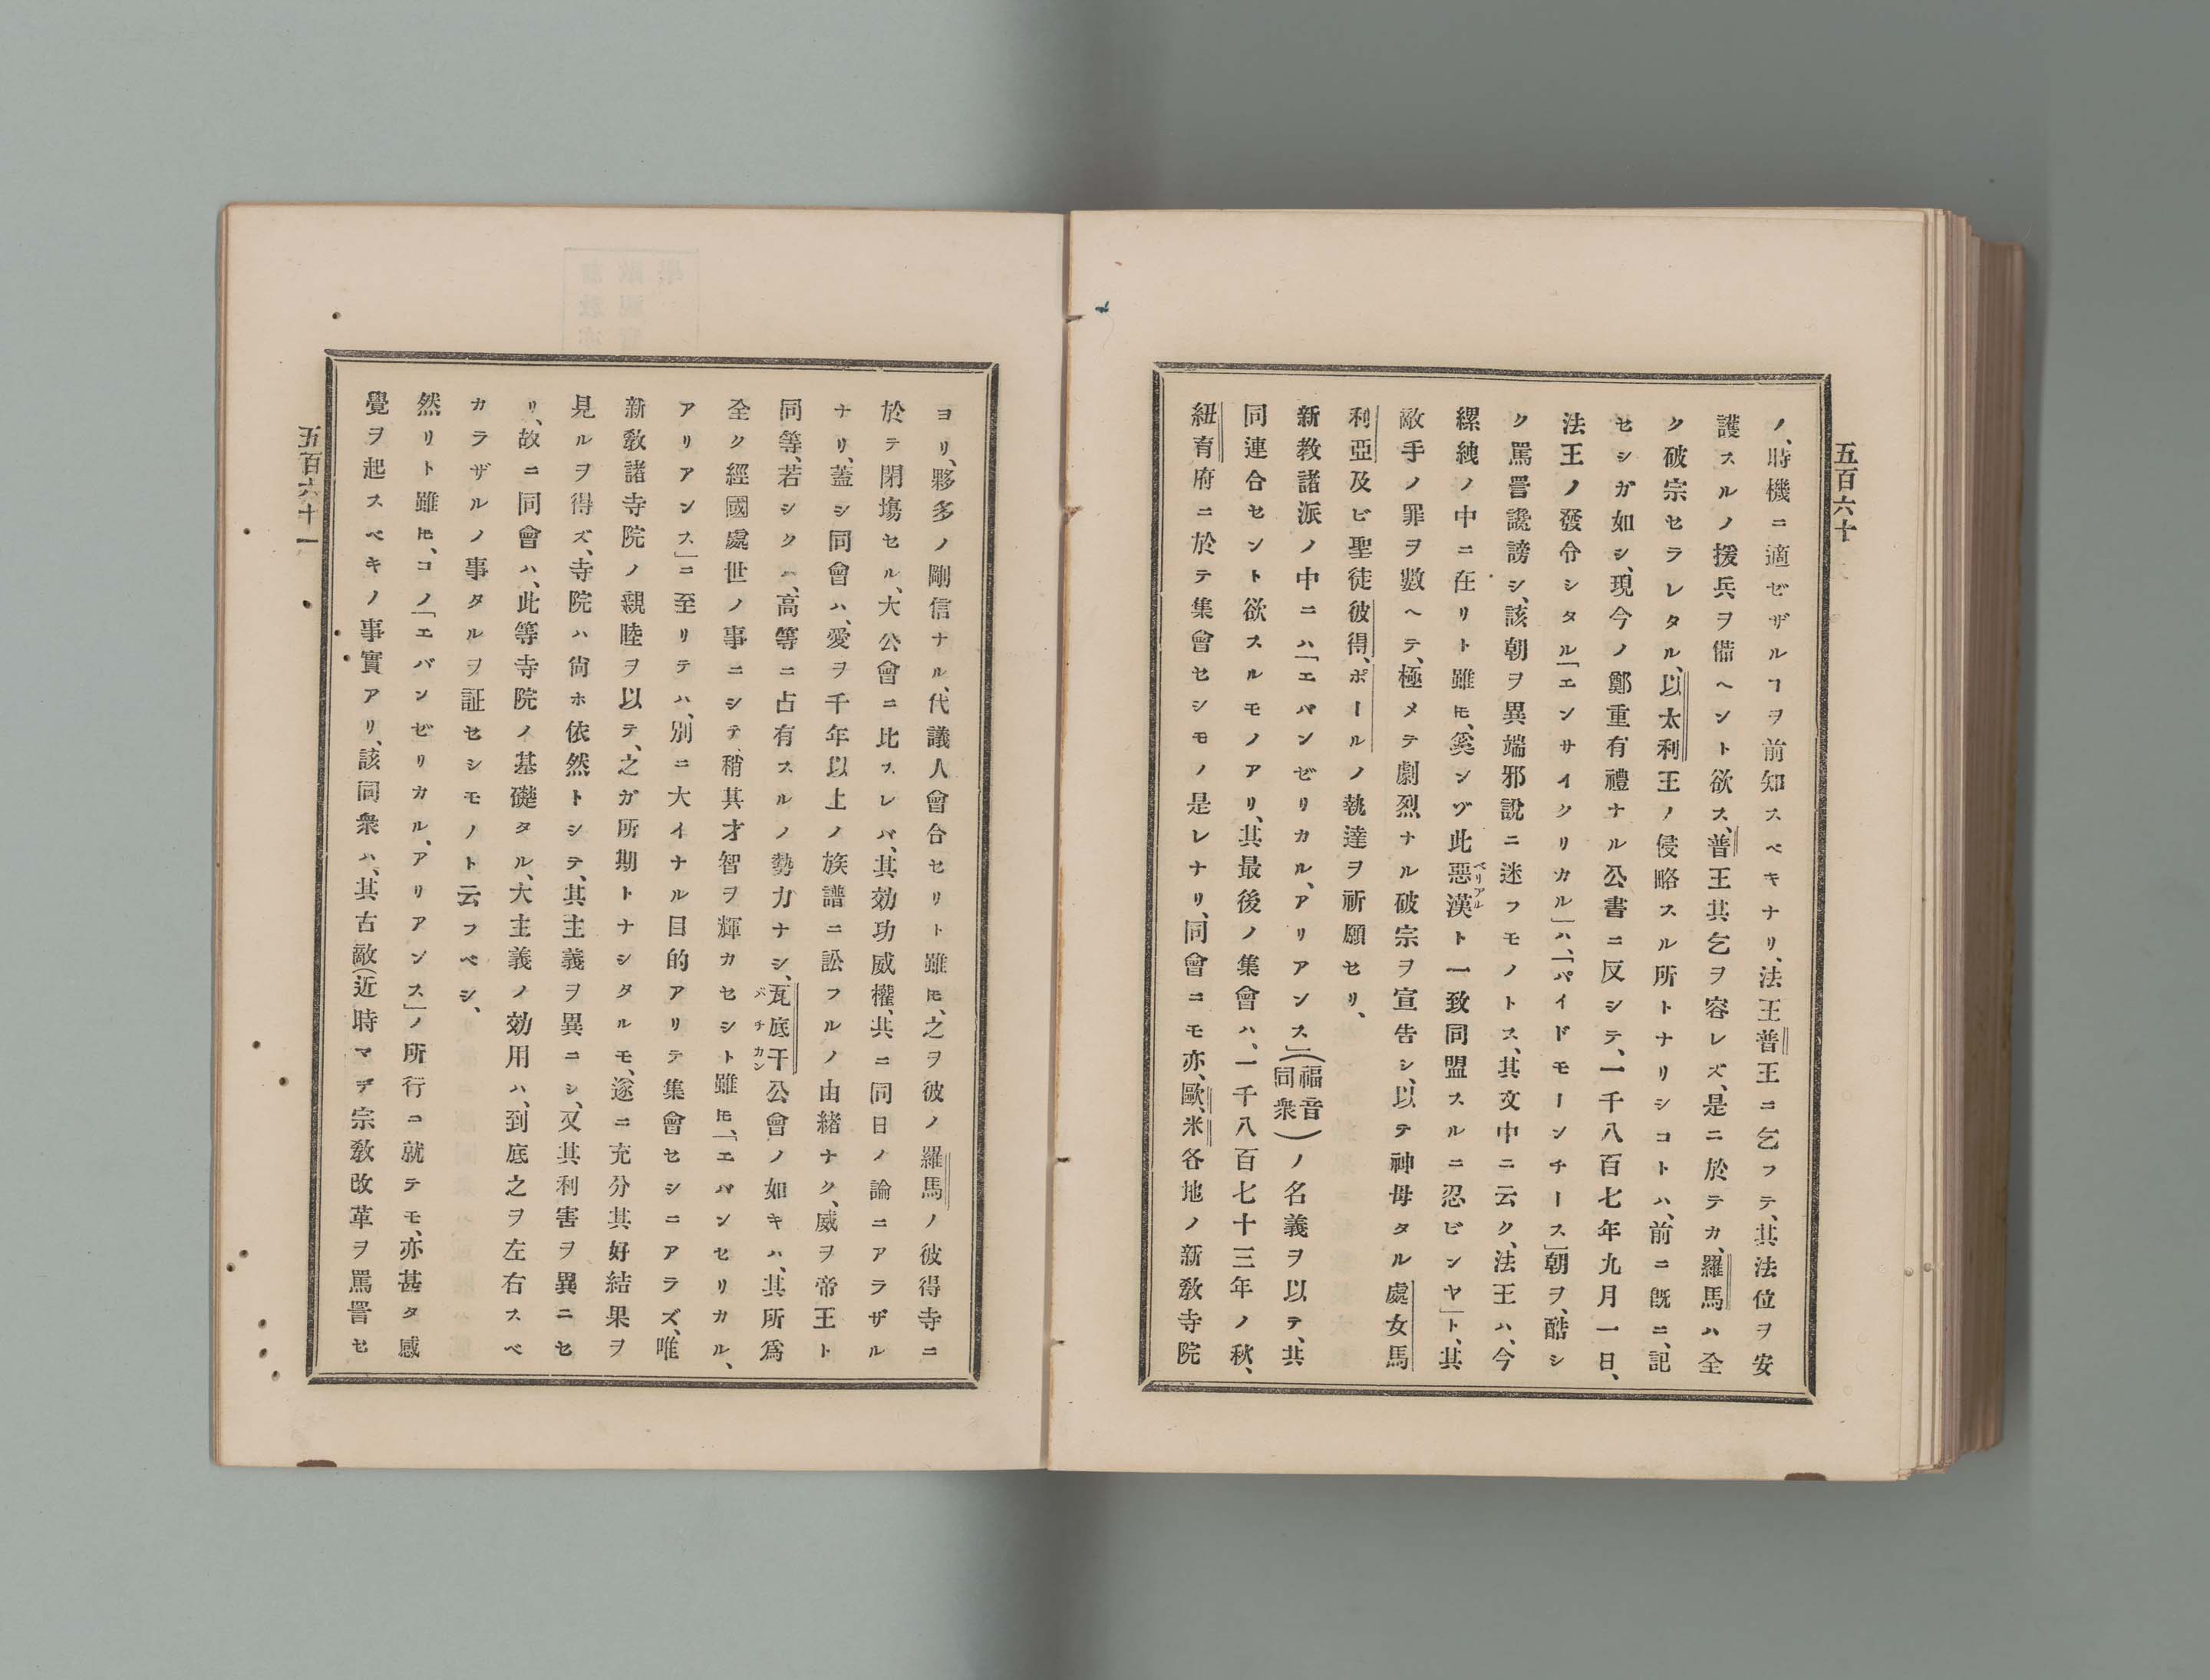 五百六十
ノ、時機ニ適セザルヿヲ前知スベキナリ、法王普王ニ乞フテ、其法位ヲ安
護スルノ援兵ヲ備ヘント欲ス、普王其乞ヲ容レズ、是ニ於テカ、羅馬ハ全
ク破宗セラレタル、以太利王ノ侵略スル所トナリシコトハ、前ニ既ニ、記
セシガ如シ、現今ノ鄭重有禮ナル公書ニ反シテ、一千八百七年九月一日、
法王ノ發令シタル「エンサイクリカル」ハ、「パイドモーンチース」朝ヲ、酷シ
ク罵詈讒謗シ、該朝ヲ異端邪說ニ迷フモノトス、其文中ニ云ク、法王ハ、今
縲絏ノ中ニ在リト雖𪜈、奚ンゾ此惡漢ト一致同盟スルニ忍ビンヤ」ト、其
ベリアル
敵手ノ罪ヲ數ヘテ、極メテ劇烈ナル破宗ヲ宣告シ、以テ神母タル處女馬
利亞及ビ聖徒彼得、ポールノ執達ヲ祈願セリ、
新教諸派ノ中ニハ「エバンゼリカル、アリアンス」(福音同衆)ノ名義ヲ以テ、共
同連合セント欲スルモノアリ、其最後ノ集會ハ、一千八百七十三年ノ秋、
紐育府ニ於テ集會セシモノ是レナリ、同會ニモ亦、歐、米各地ノ新敎寺院
ヨリ、夥多ノ剛信ナル、代議人會合セリト雖𪜈、之ヲ彼ノ羅馬ノ彼得寺ニ
於テ閉塲セル、大公會ニ比スレバ、其効功威權、共ニ同日ノ論ニアラザル
ナリ、蓋シ同會ハ、愛ヲ千年以上ノ族譜ニ訟フルノ由緒ナク、威ヲ帝王ト
同等、若シクハ、高等ニ占有スルノ勢力ナシ、瓦底干公會ノ如キハ、其所爲
バチカン
全ク經國處世ノ事ニシテ、稍其才智ヲ輝カセシト雖𪜈、「エバンセリカル、
アリアンス」ニ至リテハ、別ニ大イナル目的アリテ集會セシニアラズ、唯
新敎諸寺院ノ親睦ヲ以テ、之ガ所期トナシタルモ、遂ニ充分其好結果ヲ
見ルヲ得ズ、寺院ハ尙ホ依然トシテ、其主義ヲ異ニシ、又其利害ヲ異ニセ
リ、故ニ同會ハ、此等寺院ノ基礎タル、大主義ノ効用ハ、到底之ヲ左右スベ
カラザルノ事タルヲ証セシモノト云フベシ、
然リト雖𪜈、コノ「エバンゼリカル、アリアンス」ノ所行ニ就テモ、亦甚タ感
覺ヲ起スベキノ事實アリ、該同衆ハ、其古敵(近時マデ宗敎改革ヲ罵詈セ
五百六十一